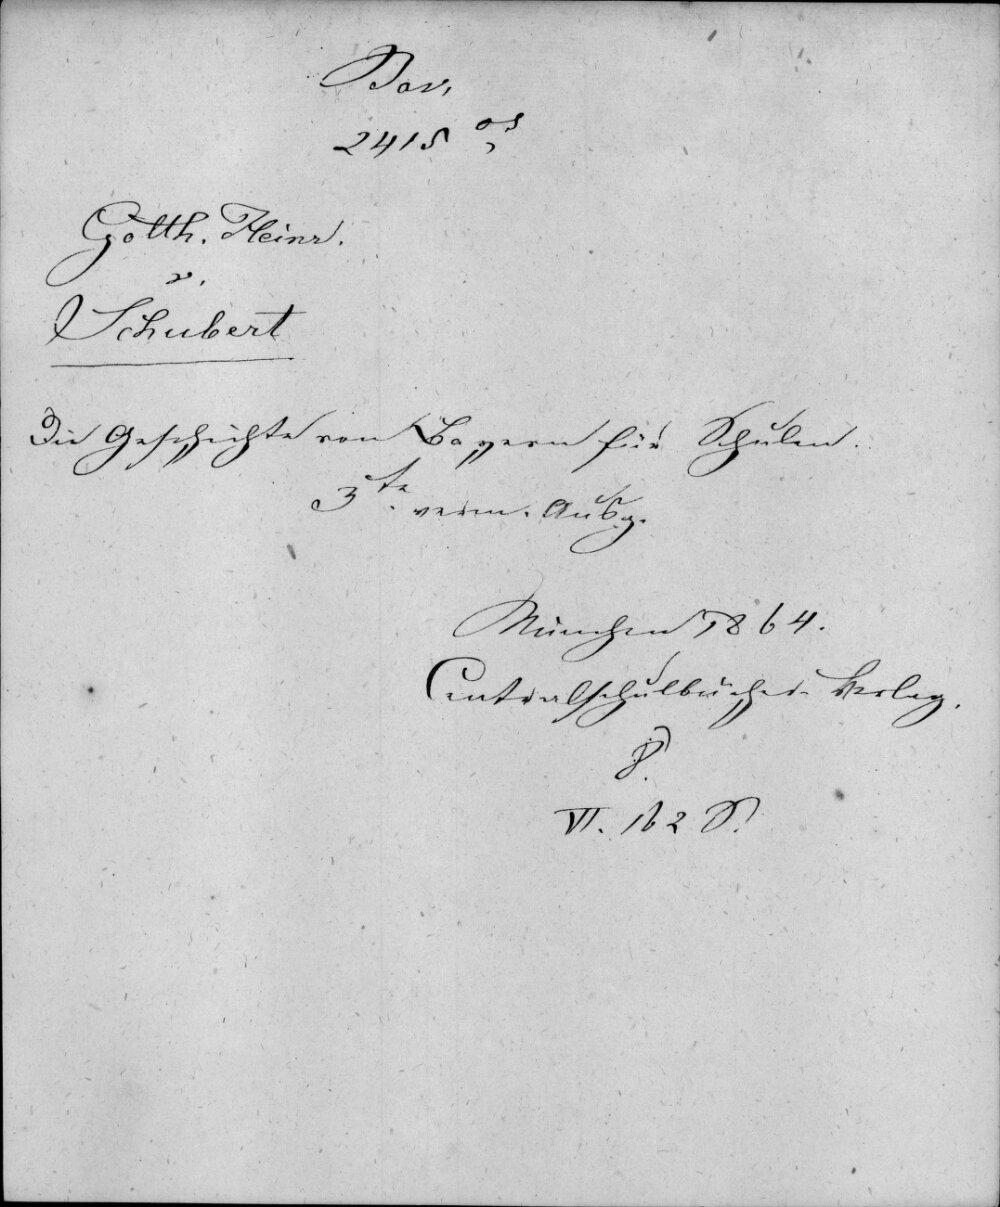 Bav.
2415 os
Gotth. Heinr.
v.
Schubert
Die Geschichte von Bayern für Schulen.
3te. verm. Ausg.
München 1864.
Centralschulbücher-Verlag.
8.
VI. 162 S.